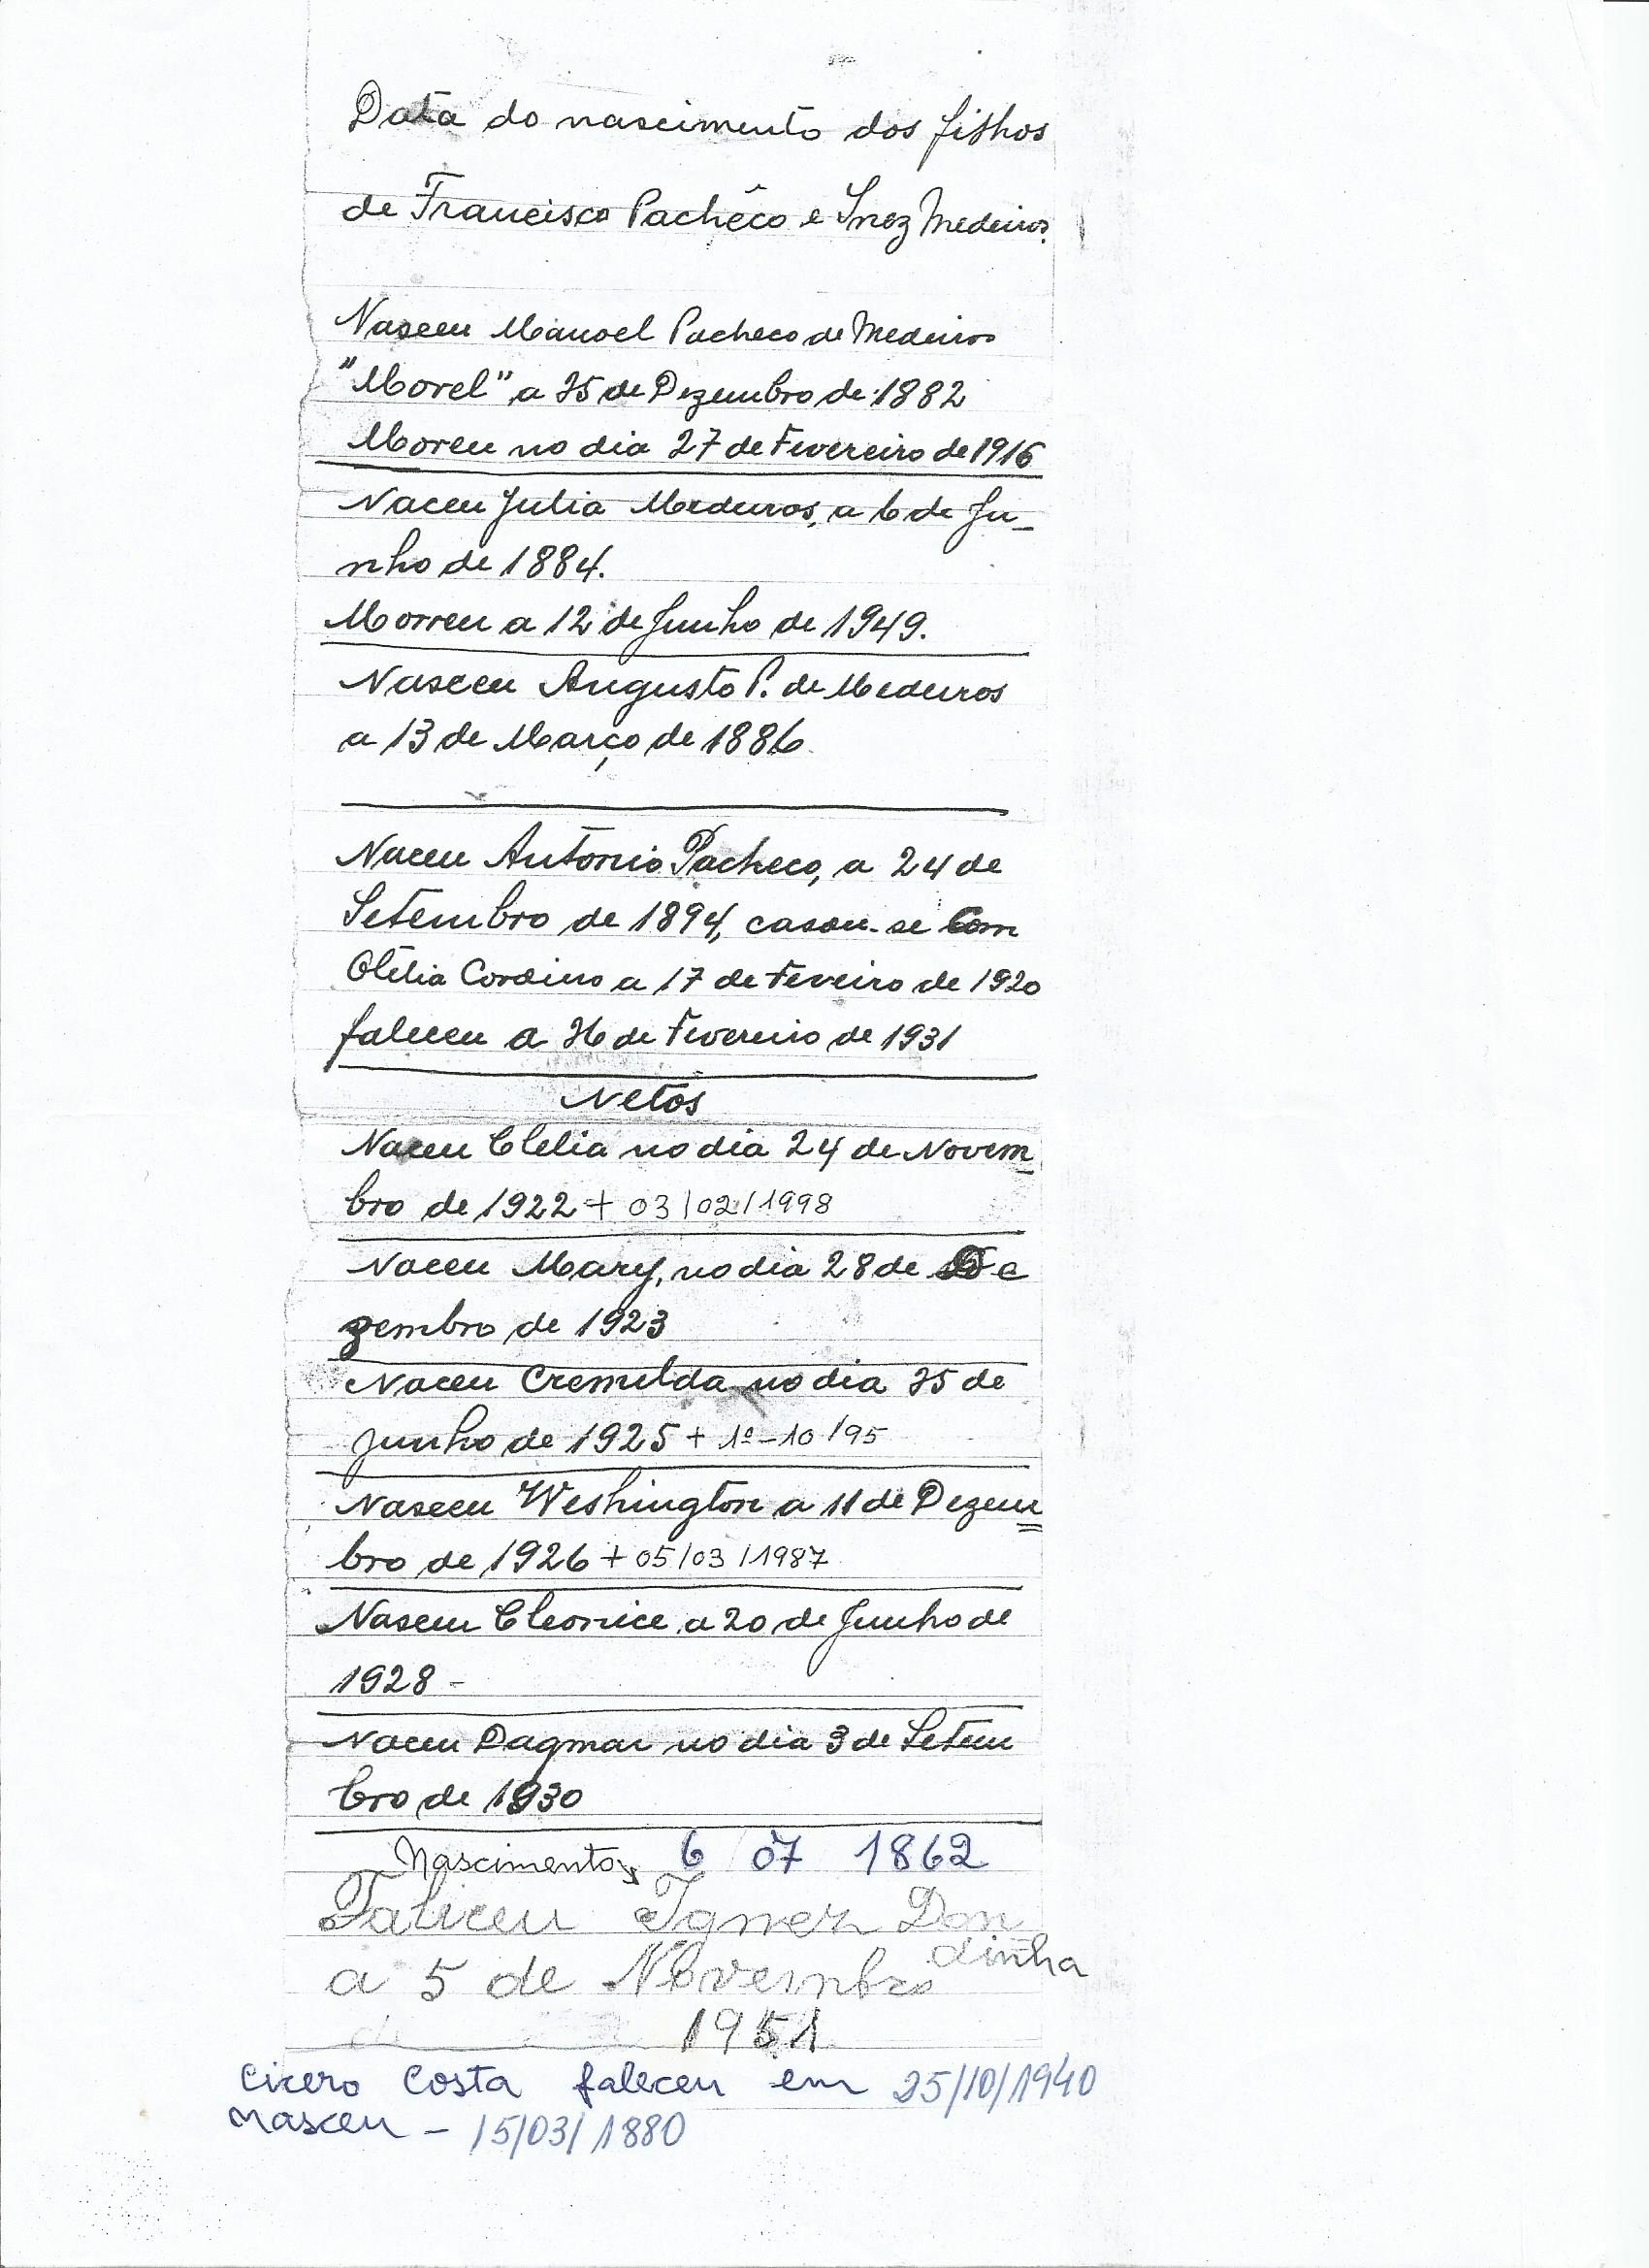 Data do nascimento dos filhos
de Francisco Pachêco e Inez Medeiros.
Nasceu Manoel Pacheco de Medeiros
"Morel" a 25 de Dezembro de 1882
Moreu no dia 27 de Fevereiro de 1916
Naceu Julia Medeiros, a 6 de Ju-
nho de 1884.
Morreu a 12 de Junho de 1949.
Nasceu Augusto P. de Medeiros
a 13 de Março de 1886.
Naceu Antonio Pacheco, a 24 de
Setembro de 1894, casou-se com
Clélia Cordeiro a 17 de Feveiro de 1920
faleceu a 26 de Fevereiro de 1931
Netos
Naceu Clelia no dia 24 de Novem
bro de 1922 + 03/02/1998
Naceu Mary, no dia 28 de De
zembro de 1923
Naceu Cremilda no dia 25 de
junho de 1925 + 1º-10/95
Nasceu Weshington a 11 de Dezem
bro de 1926 + 05/03/1987
Nasceu Cleonice a 20 de Junho de
1928 -
Naceu Dagmar no dia 3 de Setem
bro de 1930
Nascimento 6 07 1862
Faliceu Ignez Don
dinha
a 5 de Novembro
de 1951
Cicero Costa faleceu em 25/10/1940
nasceu - 15/03/1880